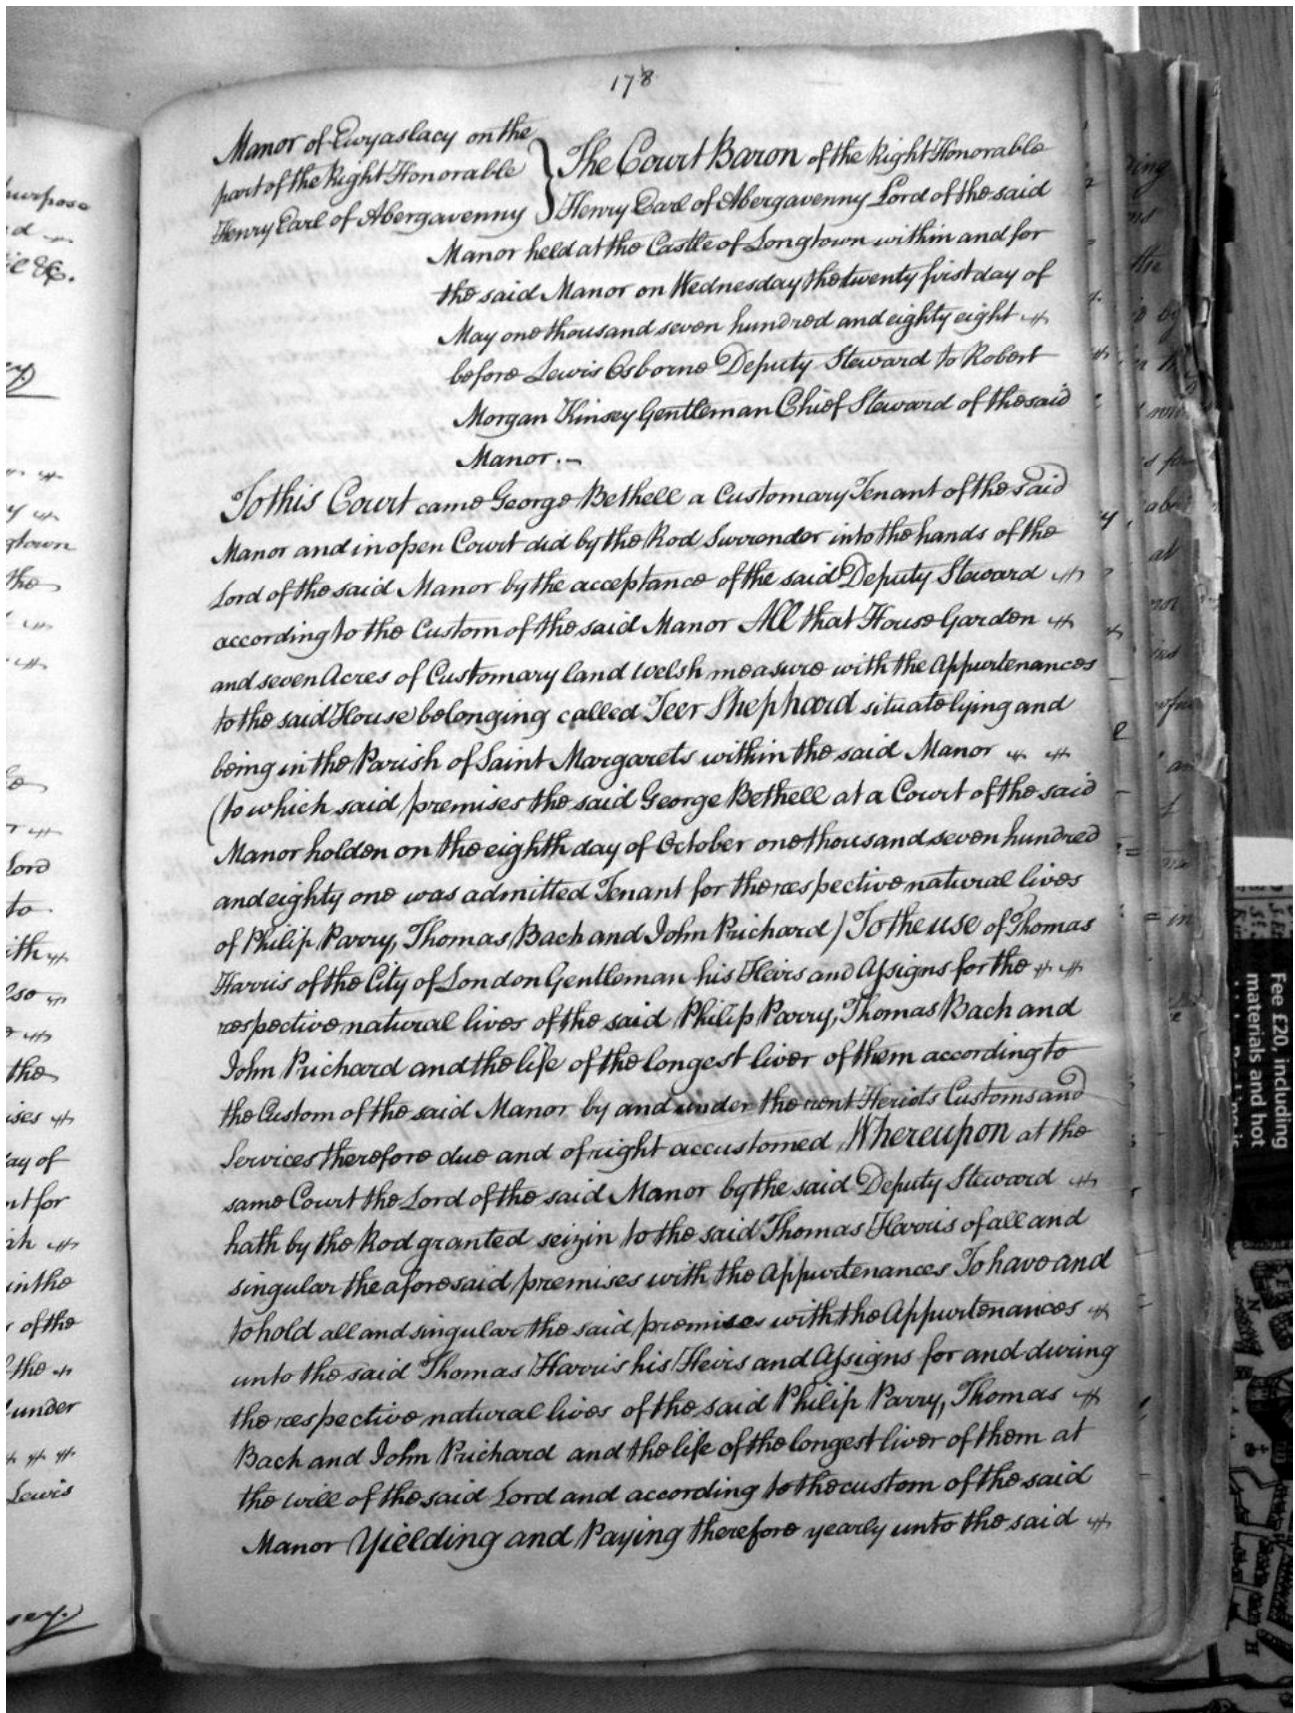 178
Manor of Ewyaslacy on the
part of the Right Honorable
Henry Earl of Abergavenny
The Court Baron of the Right Honorable
Henry Earl of Abergavenny Lord of the said
Manor held at the Castle of Longtown within and for
the said Manor on Wednesday the twenty first day of
May one thousand seven hundred and eighty eight
before Lewis Osborne Deputy Steward to Robert
Morgan Kinsey Gentleman Chief Steward of the said
Manor.-
To this Court came George Bethell a Customary Tenant of the said
Manor and in open Court did by the Rod Surrender into the hands of the
Lord of the said Manor by the acceptance of the said Deputy Steward
according to the Custom of the said Manor All that House Garden
and seven Acres of Customary land Welsh measure with the Appurtenances
to the said House belonging called Teer Shephard situate lying and
being in the Parish of Saint Margarets within the said Manor
(to which said premises the said George Bethell at a Court of the said
Manor holden on the eighth day of October one thousand seven hundred
and eighty one was admitted Tenant for the respective natural lives
of Philip Parry, Thomas Bach and John Prichard) To the use of Thomas
Harris of the City of London Gentleman his Heirs and Assigns for the
respective natural lives of the said Philip Parry, Thomas Bach and
John Prichard and the life of the longest liver of them according to
the Custom of the said Manor by and under the rent Heriots Customs and
Services therefore due and of right accustomed Whereupon at the
same Court the Lord of the said Manor by the said Deputy Steward
hath by the Rod granted seizin to the said Thomas Harris of all and
singular the aforesaid premises with the Appurtenances To have and
to hold all and singular the said premises with the Appurtenances
unto the said Thomas Harris his Heirs and Assigns for and during
the respective natural lives of the said Philip Parry, Thomas
Bach and John Prichard and the life of the longest liver of them at
the will of the said Lord and according to the custom of the said
Manor Yielding and Paying therefore yearly unto the said
purpose
&c.
the
Lord
to
the
day of
in the
of the
the
under
Lewis
Fee £20, including
materials and hot